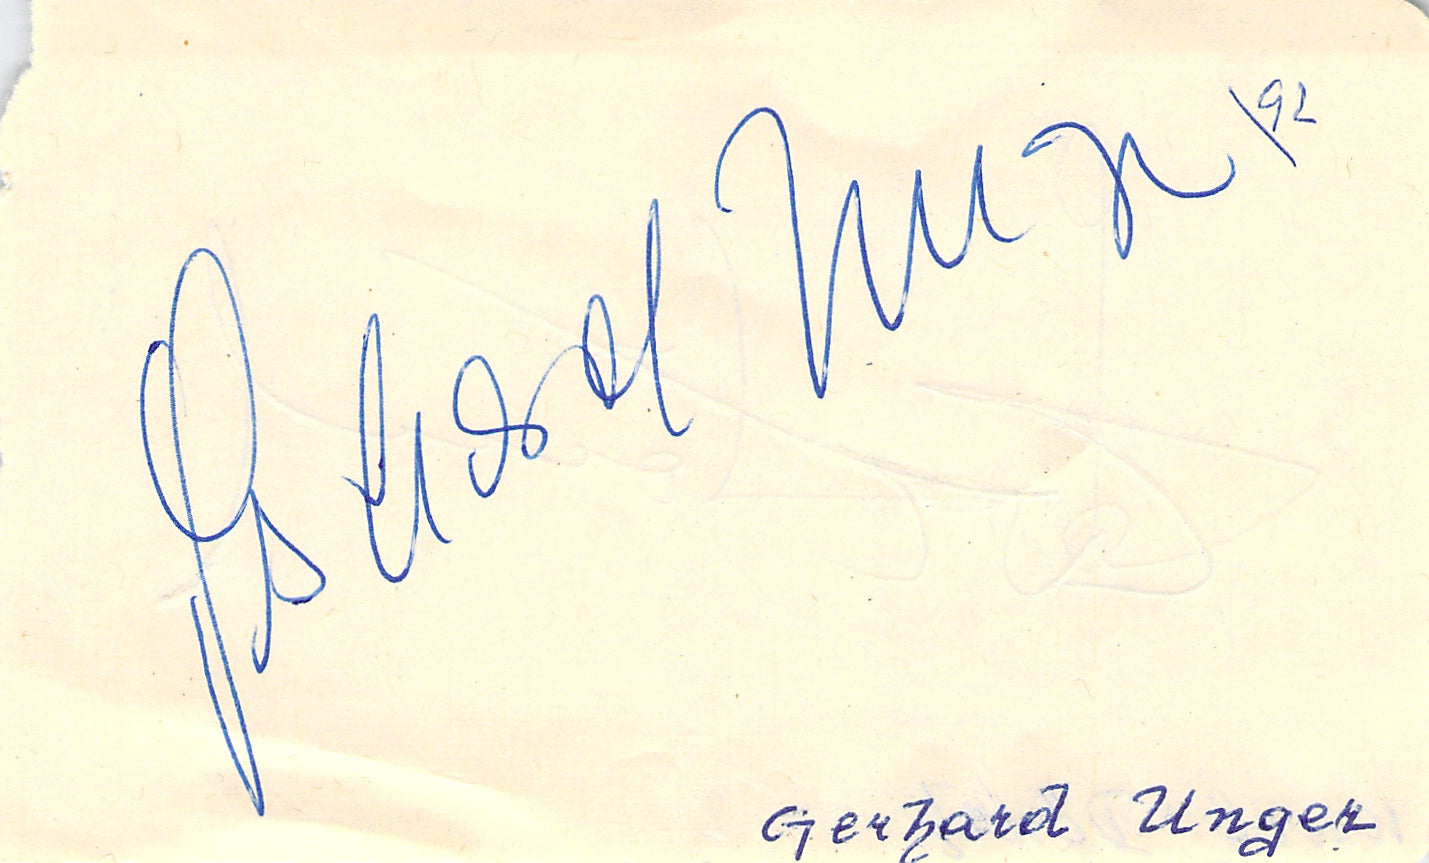 Gerhard Unger \92
Gerhard Unger